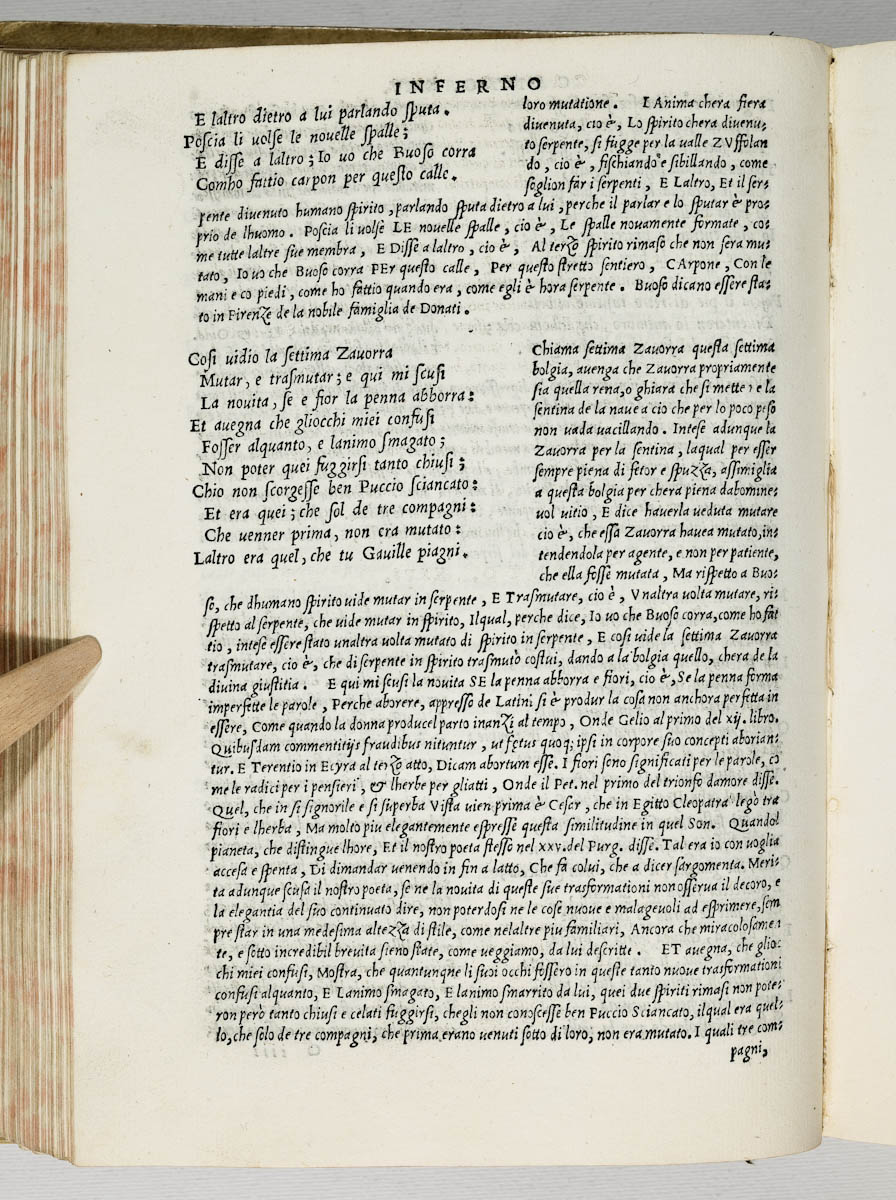 INFERNO
E laltro dietro a lui parlando sputa.
Poscia li volse le novelle spalle;
E disse a laltro; Io vo che Buoso corra
Comho fattio carpon per questo calle.
loro mutatione. LAnima chera fiera
divenuta, cio è, Lo spirito chera divenu-
to serpente, si fugge per la valle ZVffolan
do, cio è, fischiando e sibillando, come
soglion far i serpenti, E Laltro, Et il ser-
pente divenuto humano spirito, parlando sputa dietro a lui, perche il parlar e lo sputar è pro-
prio de lhuomo. Poscia li volse LE novelle spalle, cio è, Le spalle novamente formate, co-
me tutte laltre sue membra, E Disse a laltro, cio è, Al terzo spirito rimaso che non sera mu-
tato, Io vo che Buoso corra PEr questo calle, Per questo stretto sentiero, CArpone, Con le
mani e co piedi, come ho fattio quando era, come egli è hora serpente. Buoso dicano essere sta-
to in Firenze de la nobile famiglia de Donati.
Cosi uidio la settima Zauorra
Mutar, e trasmutar; e qui mi scusi
La nouita, se e fior la penna abborra:
Et auegna che gliocchi miei confusi
Fosser alquanto, e lanimo smagato;
Non poter quei fuggirsi tanto chiusi;
Chio non scorgesse ben Puccio sciancato:
Et era quei; che sol de tre compagni:
Che uenner prima, non era mutato:
Laltro era quel, che tu Gauille piagni.
Chiama settima Zauorra questa settima
bolgia, auenga che Zauorra propriamente
sia quella rena, o ghiara che si mette ne la
sentina de la naue a cio che per lo poco peso
non uada uacillando. Intese adunque la
Zauorra per la sentina, laqual per esser
sempre piena di fetor e spuzza, assimiglia
a questa bolgia per chera piena dabomine-
uol uitio, E dice hauerla ueduta mutare
cio è, che essa Zauorra hauea mutato, in-
tendendola per agente, e non per patiente,
che ella fosse mutata, Ma rispetto a Buo-
so, che dhumano spirito uide mutar in serpente, E Trasmutare, cio è, Vnaltra uolta mutare, ri-
spetto al serpente, che uide mutar in spirito, Ilqual, perche dice, Io uo che Buoso corra, come ho fat
tio, intese essere stato unaltra uolta mutato di spirito in serpente, E cosi uide la settima Zauorra
trasmutare, cio è, che di serpente in spirito trasmutò costui, dando a la bolgia quello, chera de la
diuina giustitia. E qui mi scusi la nouita SE la penna abborra e fiori, cio è, Se la penna forma
imperfette le parole, Perche aborere, appresso de Latini si è produr la cosa non anchora perfetta in
essere, Come quando la donna producel parto inanzi al tempo, Onde Gelio al primo del xij. libro.
Quibusdam commentitijs fraudibus nituntur, ut fętus quoq; ipsi in corpore suo concepti aborian-
tur. E Terentio in Ecyra al terzo atto, Dicam abortum esse. I fiori seno significati per le parole, co
me le radici per i pensieri, & lherbe per gliatti, Onde il Pet. nel primo del trionfo damore disse.
Quel, che in si signorile e si superba Vista uien prima è Cesar, che in Egitto Cleopatra legò tra
fiori e lherba, Ma molto piu elegantemente espresse questa similitudine in quel Son. Quandol
pianeta, che distingue lhore, Et il nostro poeta stesso nel xxv. del Purg. disse. Tal era io con uoglia
accesa e spenta, Di dimandar uenendo in fin a latto, Che fa colui, che a dicer sargomenta. Meri-
ta adunque scusa il nostro poeta, se ne la nouita di queste sue trasformationi non osserua il decoro, e
la elegantia del suo continuato dire, non poterdosi ne le cose nuoue e malageuoli ad esprimere, sem
pre star in una medesima altezza di stile, come nelaltre piu familiari, Ancora che miracolosamen
te, e sotto incredibil breuita sieno state, come ueggiamo, da lui descritte. ET auegna, che glioc-
chi miei confusi, Mostra, che quantunque li suoi occhi fossero in queste tanto nuoue trasformationi
confusi alquanto, E Lanimo smagato, E lanimo smarrito da lui, quei due spiriti rimasi non pote-
ron però tanto chiusi e celati fuggirsi, chegli non conoscesse ben Puccio Sciancato, ilqual era quel-
lo, che solo de tre compagni, che prima erano uenuti sotto di loro, non era mutato. I quali tre com-
pagni,